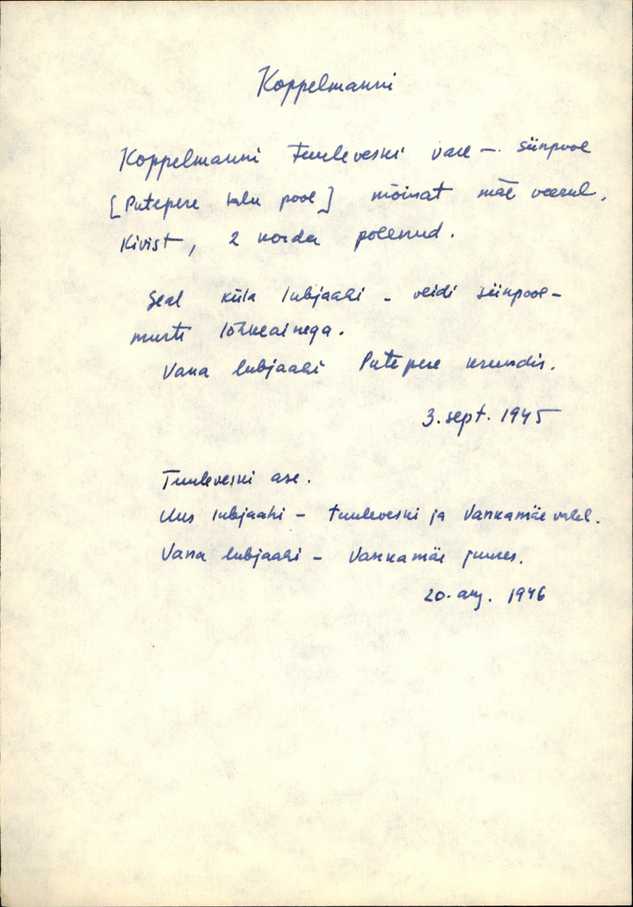 Koppelmanni
Koppelmanni tuuleveski vare – siinpool
[Putepere talu pool] mõisat mäe veerul.
Kivist, 2 korda põlenud.
Seal küla lubjaahi – veidi siinpool –
murti lõhkeainega.
Vana lubjaahi Putepere krundis.
3. sept. 1945
Tuuleveski ase.
Uus lubjaahi – tuuleveski ja Vankamäe vahel.
Vana lubjaahi – Vankamäe juures.
20. aug. 1946